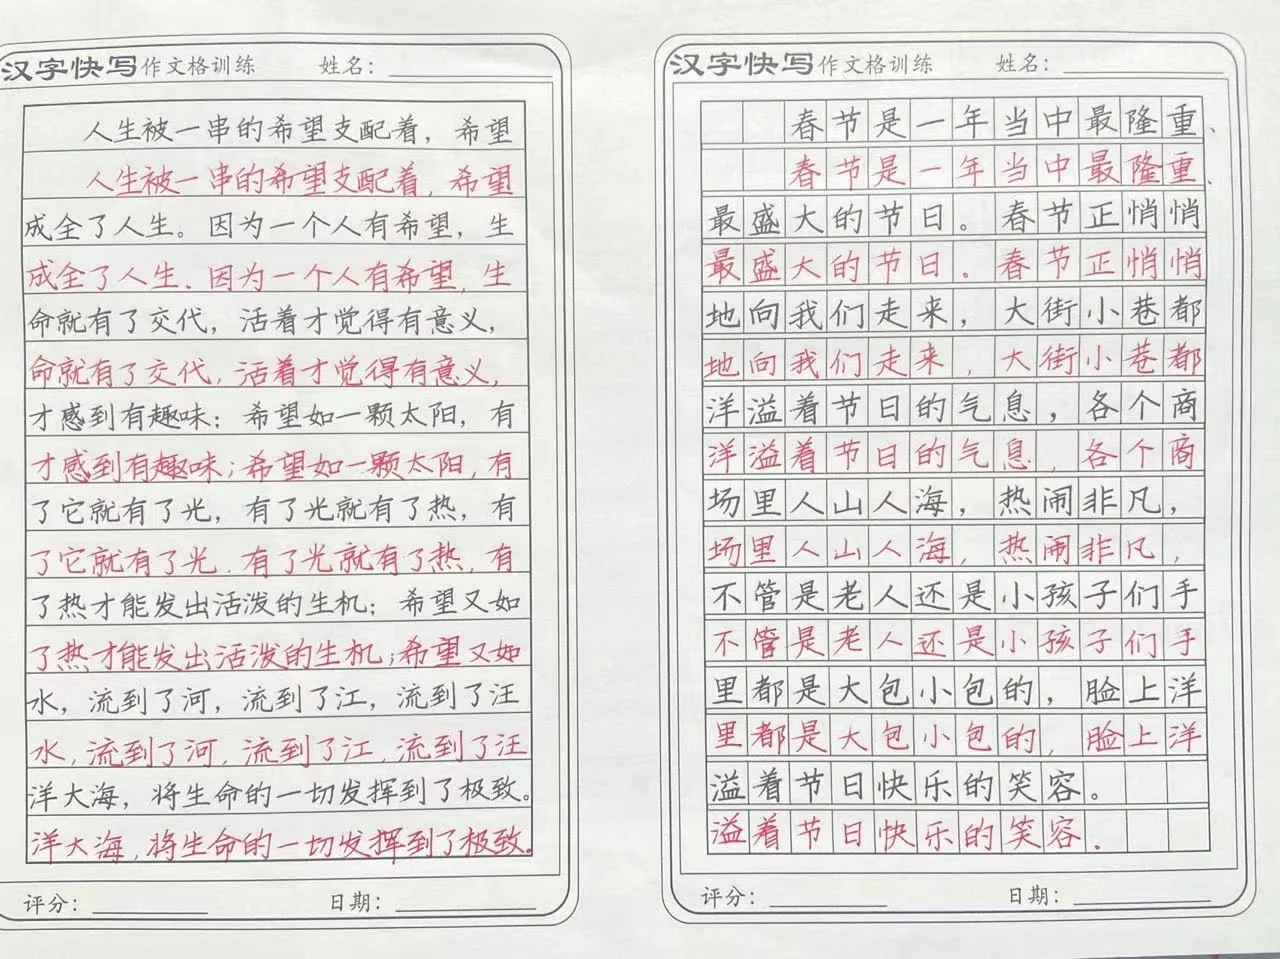 汉字快写作文格训练 姓名：
人生被一串的希望支配着，希望
人生被一串的希望支配着，希望
成全了人生。因为一个人有希望，生
成全了人生．因为一个人有希望，生
命就有了交代，活着才觉得有意义，
命就有了交代，活着才觉得有意义，
才感到有趣味；希望如一颗太阳，有
才感到有趣味；希望如一颗太阳，有
了它就有了光，有了光就有了热，有
了它就有了光．有了光就有了热，有
了热才能发出活泼的生机；希望又如
了热才能发出活泼的生机；希望又如
水，流到了河，流到了江，流到了汪
水，流到了河，流到了江，流到了汪
洋大海，将生命的一切发挥到了极致。
洋大海，将生命的一切发挥到了极致。
评分： 日期：
汉字快写作文格训练 姓名：
春节是一年当中最隆重、
春节是一年当中最隆重、
最盛大的节日。春节正悄悄
最盛大的节日．春节正悄悄
地向我们走来，大街小巷都
地向我们走来，大街小巷都
洋溢着节日的气息，各个商
洋溢着节日的气息，各个商
场里人山人海，热闹非凡，
场里人山人海，热闹非凡，
不管是老人还是小孩子们手
不管是老人还是小孩子们手
里都是大包小包的，脸上洋
里都是大包小包的，脸上洋
溢着节日快乐的笑容。
溢着节日快乐的笑容．
评分： 日期：